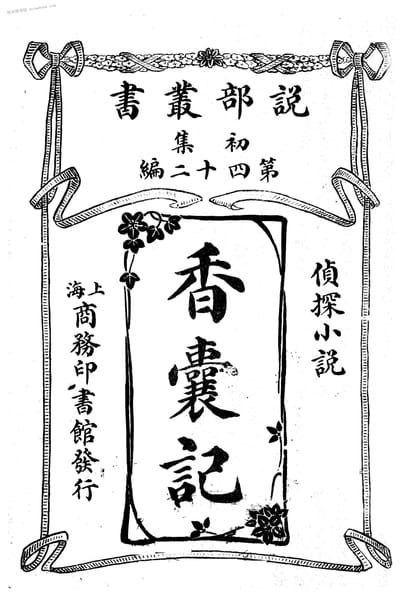 説部叢書
初集
第四十二編
偵探小説
香囊記
上海
商務印書館發行